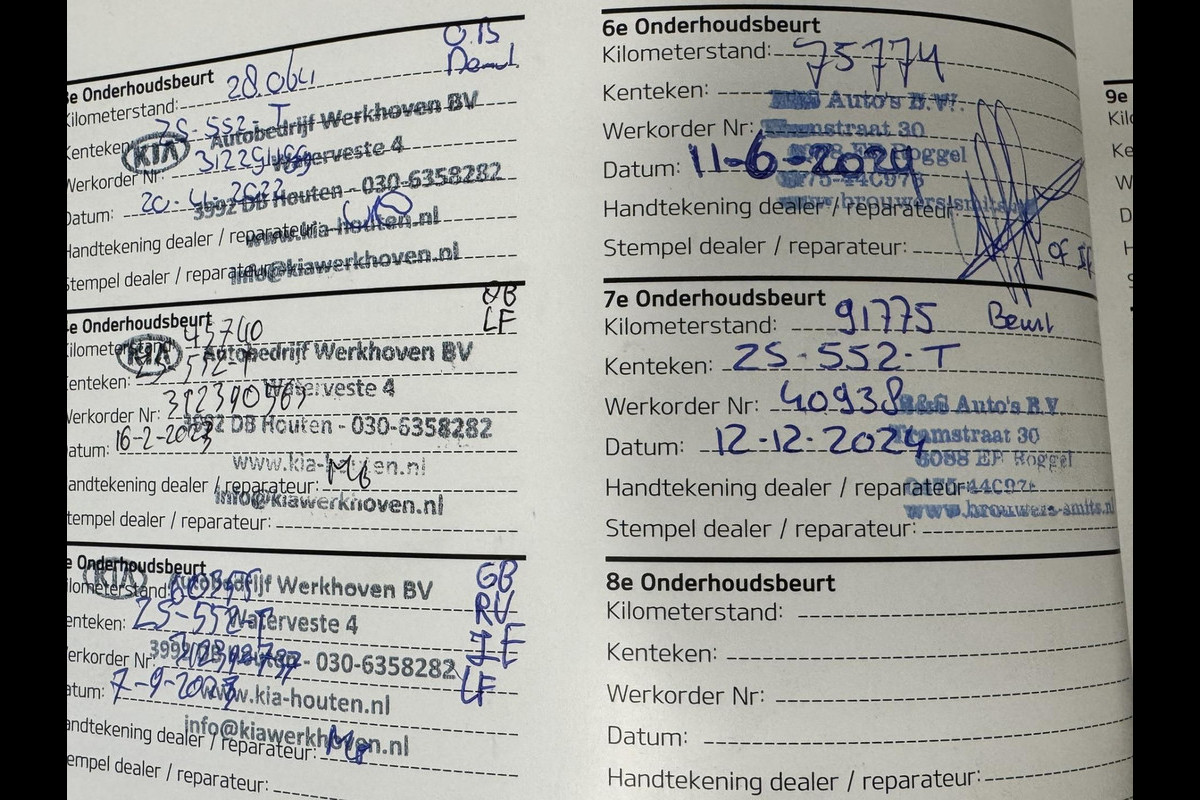 O.B
Onderhoudsbeurt
28.064
Kilometerstand:
ZS-552-T
Autobedrijf Werkhoven BV
Kenteken
KIA
Waterveste 4
Werkorder Nr:
3992 DB Houten - 030-6358282
Datum: 20-4-2022
www.kia-houten.nl
Handtekening dealer / reparateur:
info@kiawerkhoven.nl
Stempel dealer / reparateur:
OB
LF
Onderhoudsbeurt
45740
Kilometerstand:
KIA
Autobedrijf Werkhoven BV
Kenteken: ZS-552-T
Waterveste 4
Werkorder Nr: 312390969
3992 DB Houten - 030-6358282
Datum: 16-2-2023
www.kia-houten.nl
Handtekening dealer / reparateur:
info@kiawerkhoven.nl
Stempel dealer / reparateur:
Onderhoudsbeurt
GB
RV
LF
KIA
Autobedrijf Werkhoven BV
Kilometerstand:
Kenteken: ZS-552-T
Waterveste 4
Werkorder Nr:
3992 DB Houten - 030-6358282
Datum: 7-9-2023
www.kia-houten.nl
info@kiawerkhoven.nl
Handtekening dealer / reparateur:
Stempel dealer / reparateur:
6e Onderhoudsbeurt
Kilometerstand: 75774
Kenteken:
B&S Auto's B.V.
Werkorder Nr:
Teamstraat 30
6088 EP Roggel
Datum: 11-6-2024
www.brouwers-smits.nl
Handtekening dealer / reparateur:
Stempel dealer / reparateur:
Beurt
7e Onderhoudsbeurt
Kilometerstand: 91775
Kenteken: ZS-552-T
Werkorder Nr: 40938
B&S Auto's B.V.
Datum: 12-12-2024
Teamstraat 30
6088 EP Roggel
Handtekening dealer / reparateur:
www.brouwers-smits.nl
Stempel dealer / reparateur:
8e Onderhoudsbeurt
Kilometerstand:
Kenteken:
Werkorder Nr:
Datum:
Handtekening dealer / reparateur:
9e